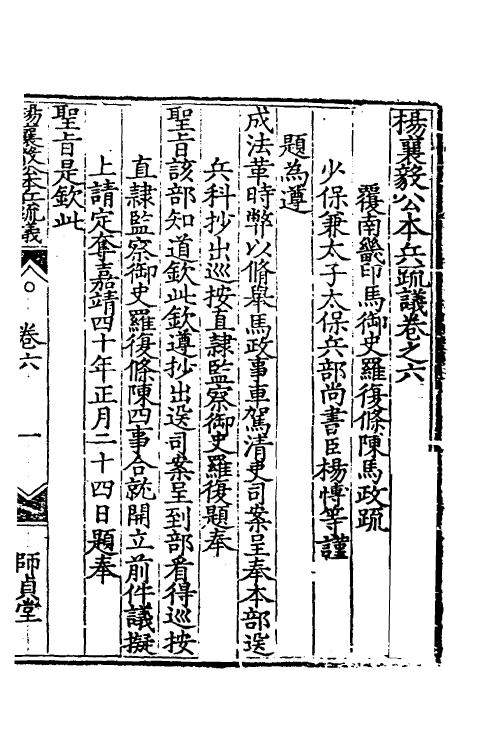 楊襄毅公本兵疏議卷之六
覆南畿印馬御史羅復條陳馬政疏
少保兼太子太保兵部尚書臣楊愽等謹
題為遵
成法革時弊以脩舉馬政事車駕清吏司案呈奉本部送
兵科抄出巡按直隷監察御史羅復題奉
聖旨該部知道欽此欽遵抄出送司案呈到部看得巡按
直隷監察御史羅復條陳四事合就開立前件議擬
上請定奪嘉靖四十年正月二十四日題奉
聖旨是欽此
楊襄毅公本兵疏議
卷六
一
師貞堂